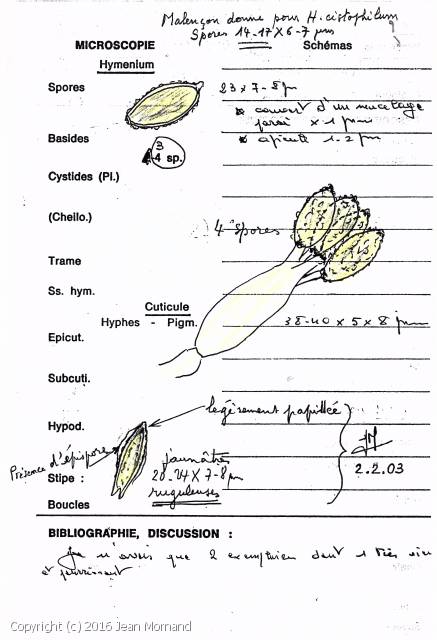 Malençon donne pour H. cistophilum
Spores 14-17 X 6-7 µm
MICROSCOPIE
Schémas
Hymenium
Spores
23 x 7-8 µ
* couvert d'un mucilage
x 1 µm
Basides
* apicule 1-2 µm
3
4 sp.
Cystides (Pl.)
(Cheilo.)
4 spores
Trame
Ss. hym.
Cuticule
Hyphes - Pigm.
38-40 x 5 x 8 µm
Epicut.
Subcuti.
légèrement papillée
Hypod.
Présence d'épispore
jaunâtres
Stipe :
20-24 X 7-8 µ
2.2.03
ruguleuses
Boucles
BIBLIOGRAPHIE, DISCUSSION :
Je n'avais que 2 exemplaires dont 1 très vieux
et pourrissant
Copyright (c) 2016 Jean Mornand